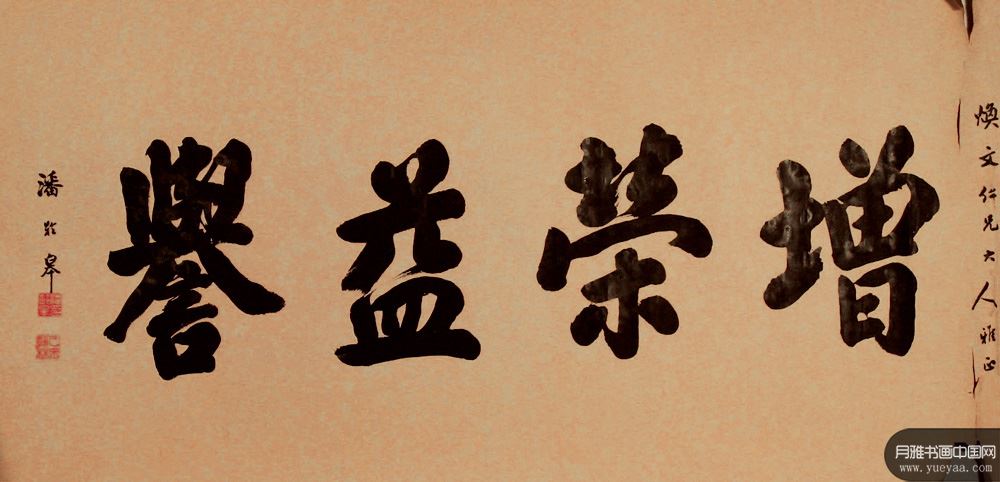 煥文仁兄大人雅正
增榮益譽
潘齡皋
月雅书画中国网
www.yueyaa.com